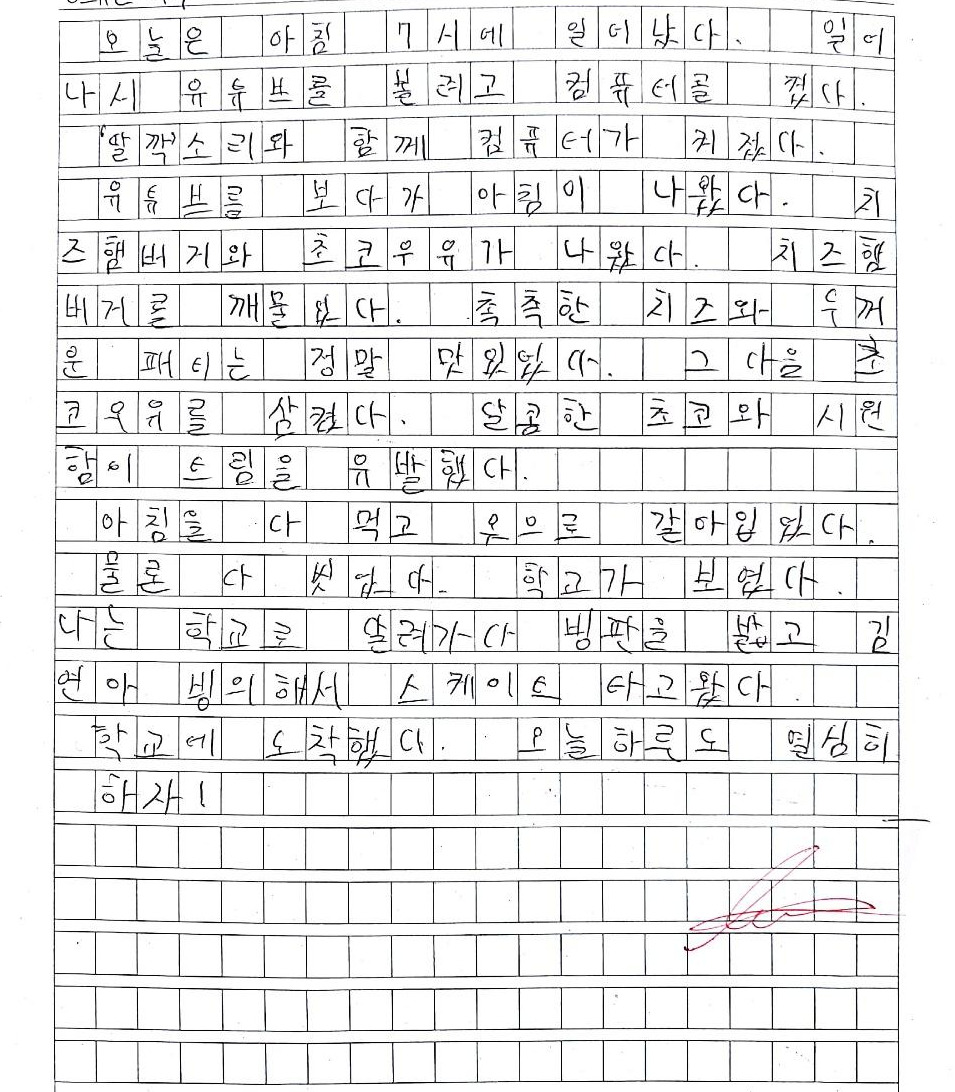 오늘은 아침 7시에 일어났다. 일어
나시 유튜브를 볼려고 컴퓨터를 켰다.
'딸깍'소리와 함께 컴퓨터가 켜졌다.
유튜브를 보다가 아침이 나왔다. 치
즈햄버거와 초코우유가 나왔다. 치즈햄
버거를 깨물었다. 촉촉한 치즈와 두꺼
운 패티는 정말 맛있었다. 그 다음 초
코우유를 삼켰다. 달콤한 초코와 시원
함이 트림을 유발했다.
아침을 다 먹고 옷으로 갈아입었다.
물론 다 씻었다. 학교가 보였다.
나는 학교로 달려가다 빙판을 밟고 김
연아 빙의해서 스케이트 타고왔다.
학교에 도착했다. 오늘하루도 열심히
하자!